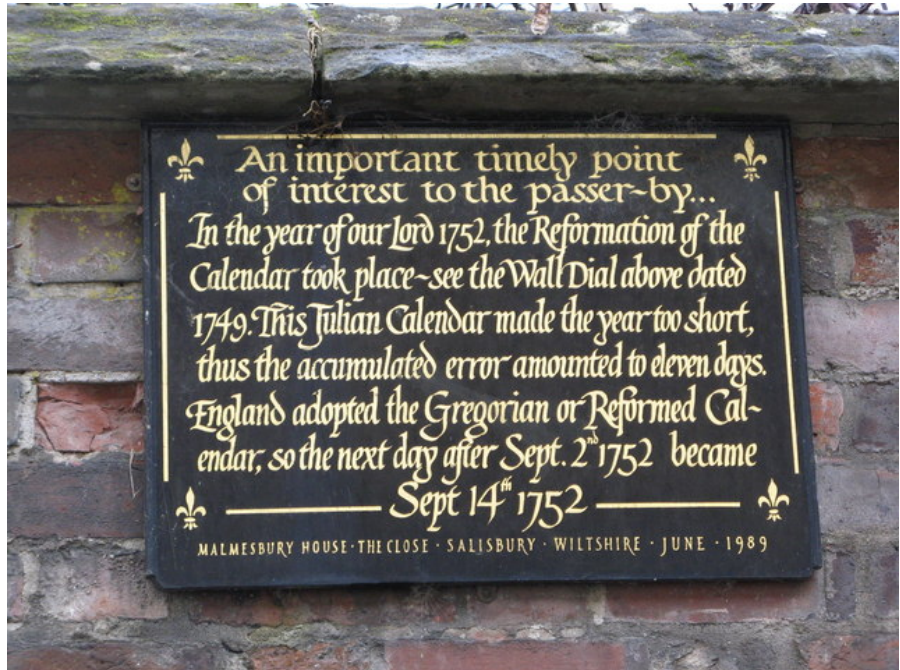 An important timely point
of interest to the passer-by...
In the year of our Lord 1752, the Reformation of the
Calendar took place~see the Wall Dial above dated
1749. This Julian Calendar made the year too short,
thus the accumulated error amounted to eleven days.
England adopted the Gregorian or Reformed Cal-
endar, so the next day after Sept. 2nd 1752 became
Sept 14th 1752
MALMESBURY HOUSE · THE CLOSE · SALISBURY · WILTSHIRE · JUNE · 1989